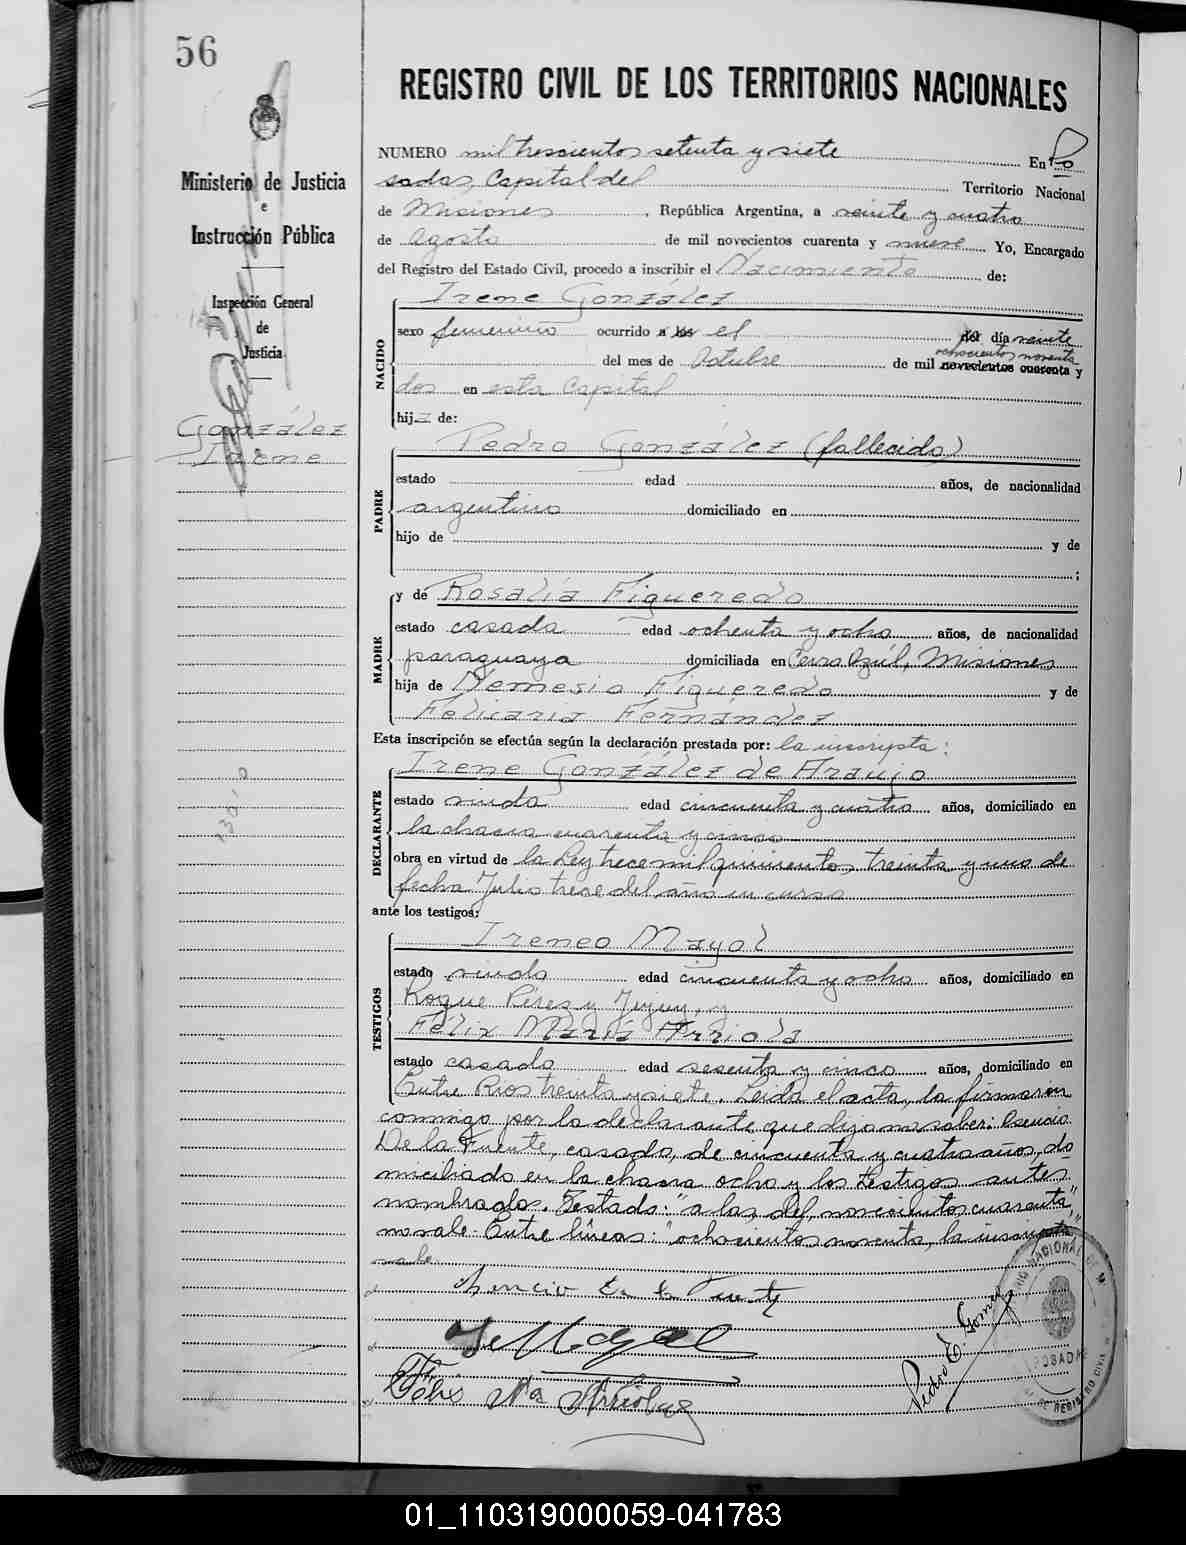 56
REGISTRO CIVIL DE LOS TERRITORIOS NACIONALES
Ministerio de Justicia
e
Instrucción Pública
Inspección General
de
Justicia
González
Irene
NUMERO mil trescientos setenta y siete En Po
sadas, Capital del Territorio Nacional
de Misiones, República Argentina, a veinte y cuatro
de Agosto de mil novecientos cuarenta y nueve Yo, Encargado
del Registro del Estado Civil, procedo a inscribir el Nacimiento de:
NACIDO
Irene González
sexo femenino ocurrido a las el del día veinte
ochocientos noventa
del mes de Octubre de mil novecientos cuarenta y
dos en esta Capital
hija de:
PADRE
Pedro González (fallecido)
estado edad años, de nacionalidad
argentino domiciliado en
hijo de y de
;
MADRE
y de Rosalía Figueredo
estado casada edad ochenta y ocho años, de nacionalidad
paraguaya domiciliada en Cerro Azúl, Misiones
hija de Nemesio Figueredo y de
Felicaria Fernández
Esta inscripción se efectúa según la declaración prestada por: la inscripta:
DECLARANTE
Irene González de Araujo
estado viuda edad cincuenta y cuatro años, domiciliado en
la chacra cuarenta y cinco
obra en virtud de la Ley trece mil quinientos treinta y uno de
fecha Julio trece del año en curso
ante los testigos:
TESTIGOS
Ireneo Mayol
estado viudo edad cincuenta y ocho años, domiciliado en
Roque Pérez y Jujuy, y
Félix María Arriola
estado casado edad sesenta y cinco años, domiciliado en
Entre Rios treinta y siete. Leida el acta, la firmaron
conmigo por la declarante que dijo no saber: Asencio
De la Fuente, casado, de cincuenta y cuatro años, do
miciliado en la chacra ocho y los testigos antes
nombrados. Testado: "a las, del, novecientos cuarenta,"
no vale. Entre líneas: "ochocientos noventa, la inscripta,"
vale.
Asencio De la Fuente
I Mayol
Félix Ma Arriola
Pedro E. Gomez
POSADAS
01_110319000059-041783